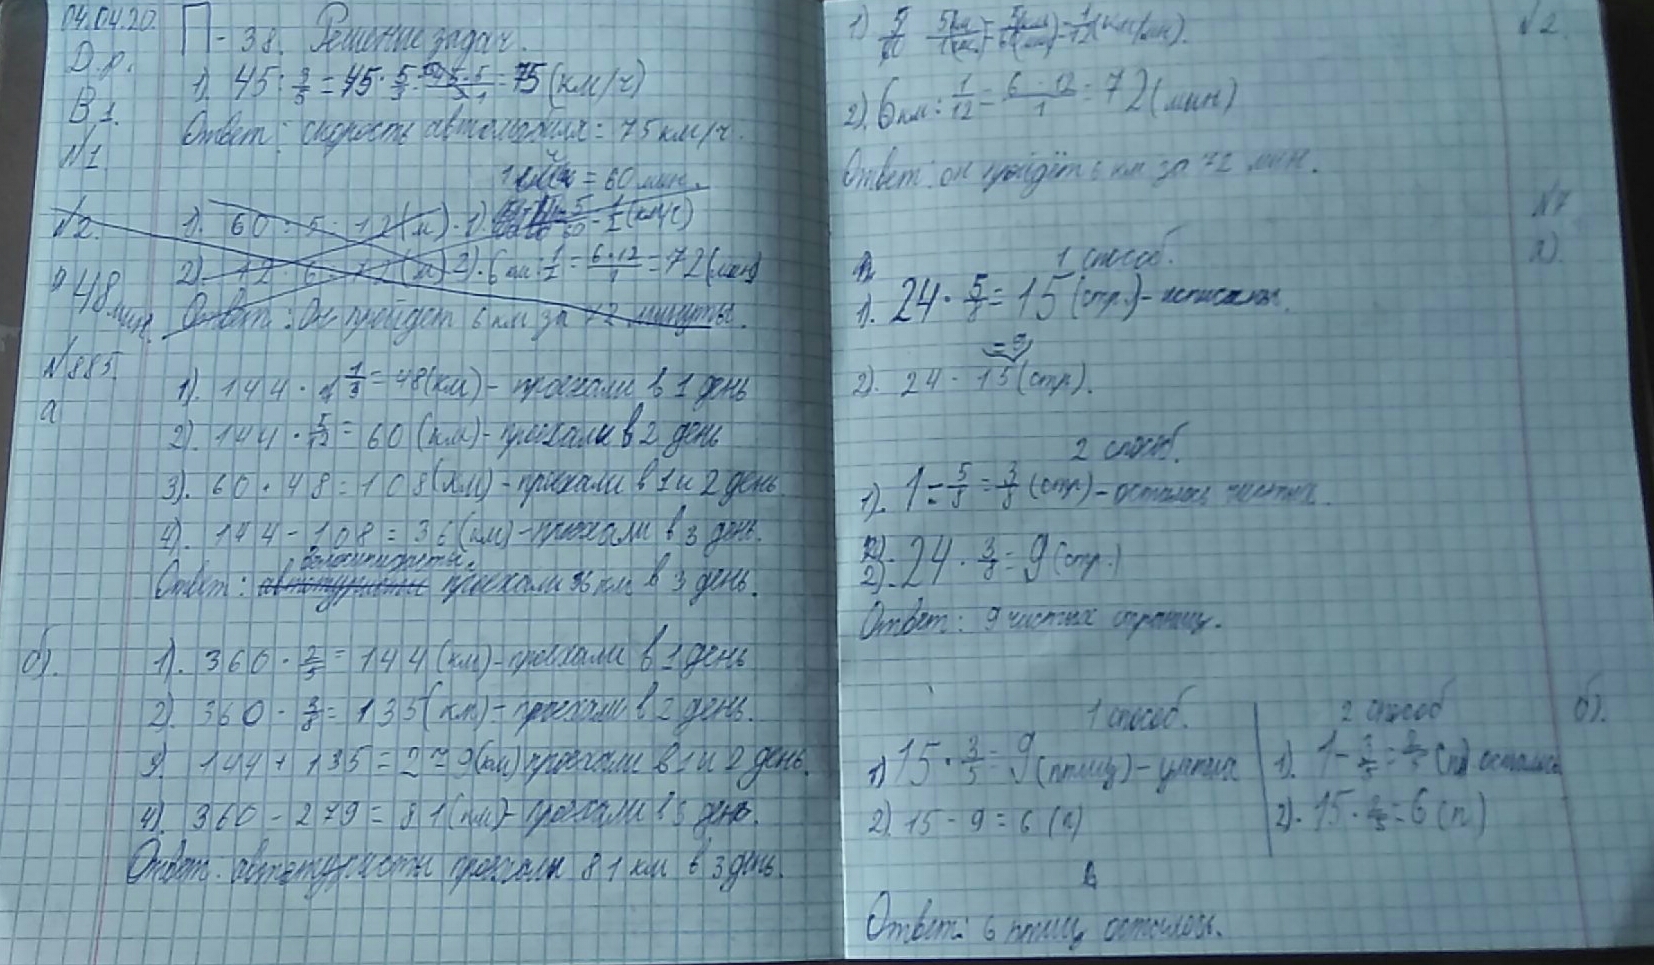 04.04.20. П - 38. Решение задач.
Д.р.
В 1.
№1
1). 45 : 3/5 = 45 · 5/3 = 75 (км/ч)
Ответ: скорость автомобиля = 75 км/ч.
1 = 60 мин.
№2. 1). 60 : 5 = 12 (м) 1). 5/60 = 1/12 (км/ч)
2). 12 · 6 = 72 (м) 2). 6 км : = 6·12/1 = 72 (мин)
48 мин.
Ответ: Он пройдет 6 км за 72 минуты.
№885.
а
1). 144 · 1/3 = 48 (км) - проехали в 1 день
2). 144 · 5/12 = 60 (км) - проехали в 2 день
3). 60 + 48 = 108 (км) - проехали в 1 и 2 день.
4). 144 - 108 = 36 (км) - проехали в 3 день.
велосипедисты
Ответ: автотуристы проехали 36 км в 3 день.
б). 1). 360 · 2/5 = 144 (км) - проехали в 1 день
2). 360 · 3/8 = 135 (км) - проехали в 2 день.
3). 144 + 135 = 279 (км) проехали в 1 и 2 день.
4). 360 - 279 = 81 (км) - проехали в 3 день.
Ответ: автотуристы проехали 81 км в 3 день.
№2.
1) 5/60 5км/1(ч) = 5(км)/60(мин) = 1/12 (км/мин).
2). 6 км : 1/12 = 6 · 12/1 = 72 (мин)
Ответ: он пройдёт 6 км за 72 мин.
№7
а).
1 способ.
1). 24 · 5/8 = 15 (стр.) - исписаны.
= 9
2). 24 - 15 (стр).
2 способ.
1). 1 - 5/8 = 3/8 (стр) - осталось чистых.
2). 24 · 3/8 = 9 (стр.)
Ответ: 9 чистых страниц.
1 способ. 2 способ б).
1) 15 · 3/5 = 9 (птиц) - улетих 1). 1 - 3/5 = 2/5 (п) осталось
2). 15 - 9 = 6 (п) 2). 15 · 2/5 = 6 (п)
Ответ: 6 птиц осталось.